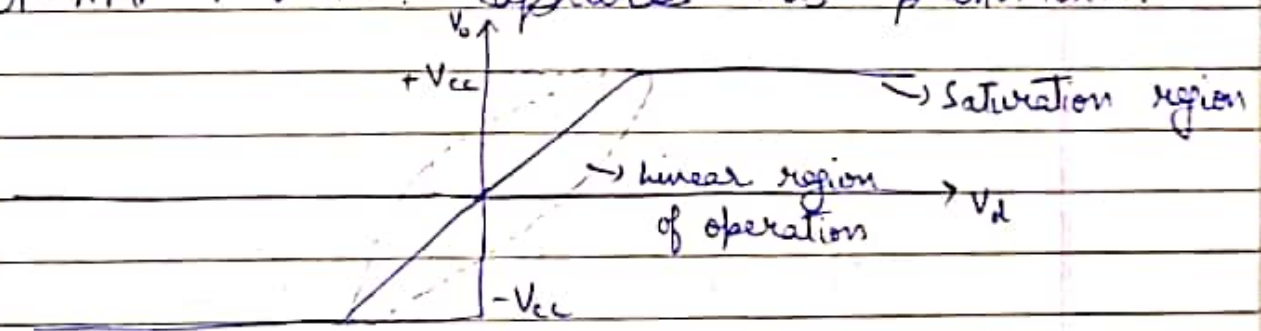 V₀
+Vcc
Saturation region
Linear region
of operation
Vd
-Vcc